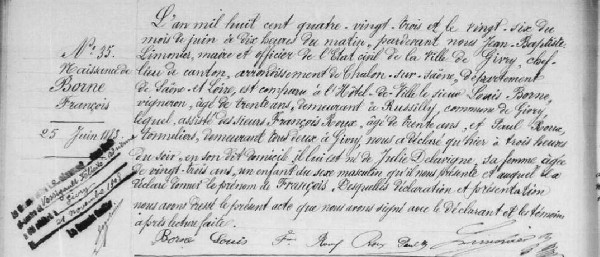 L'an mil huit cent quatre-vingt-trois et le vingt-six du
mois de juin à dix heures du matin, pardevant nous Jean-Baptiste
Limonier, maire et officier de l'Etat civil de la Ville de Givry, chef-
lieu de canton, arrondissement de Chalon-sur-Saône, département
de Saône et Loire, est comparu à l'Hôtel-de-Ville le sieur Louis Borne,
vigneron, âgé de trente ans, demeurant à Russilly, commune de Givry,
lequel, assisté des sieurs François Roux, âgé de trente ans, et Paul Roux,
tonneliers, demeurant tous deux à Givry, nous a déclaré qu'hier à trois heures
du soir, en son dit domicile, il lui est né de Julie Delavigne, sa femme, âgée
de vingt-trois ans, un enfant du sexe masculin qu'il nous présente et auquel il a
déclaré donner le prénom de François. Desquelles déclaration et présentation
nous avons dressé le présent acte que nous avons signé avec le déclarant et les témoins
après lecture faite.
Borne Louis F. Roux Roux Paul Limonier
N° 35.
Naissance de
Borne
François
25 Juin 1883